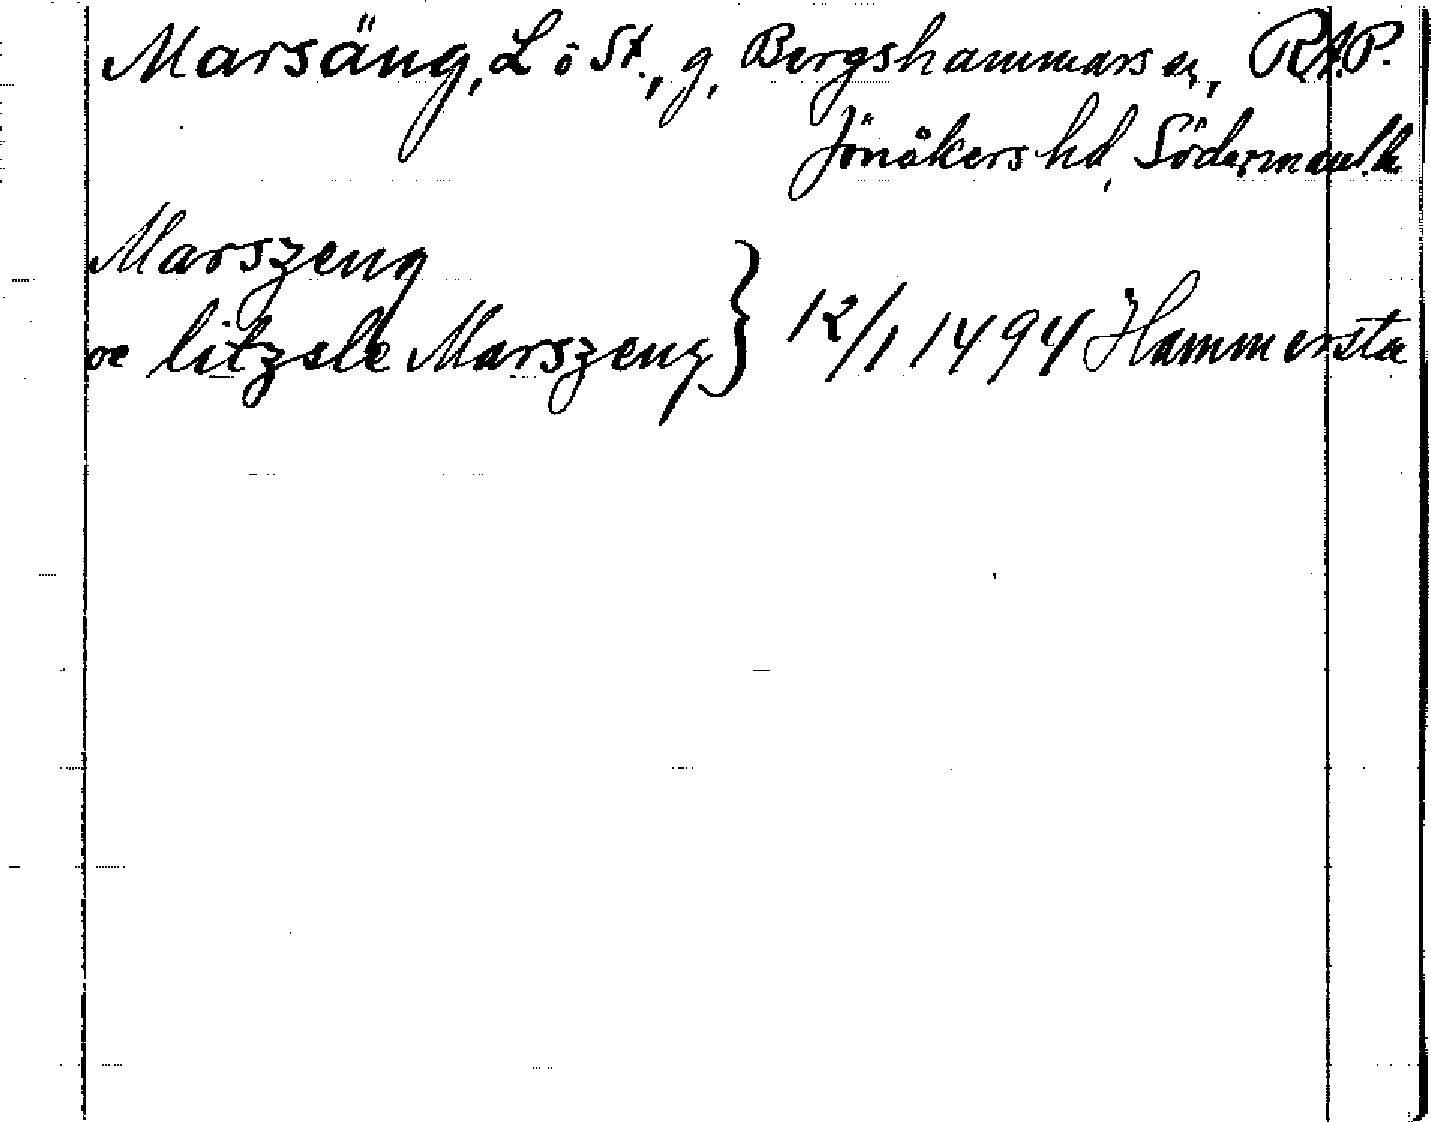 Marsäng, L. ö St., g, Bergshammars sn, RAP.
Jönåkers hd, Södermanl. l.
Marszeng
oc litzsle Marszeng } 12/1 1494 Hammersta